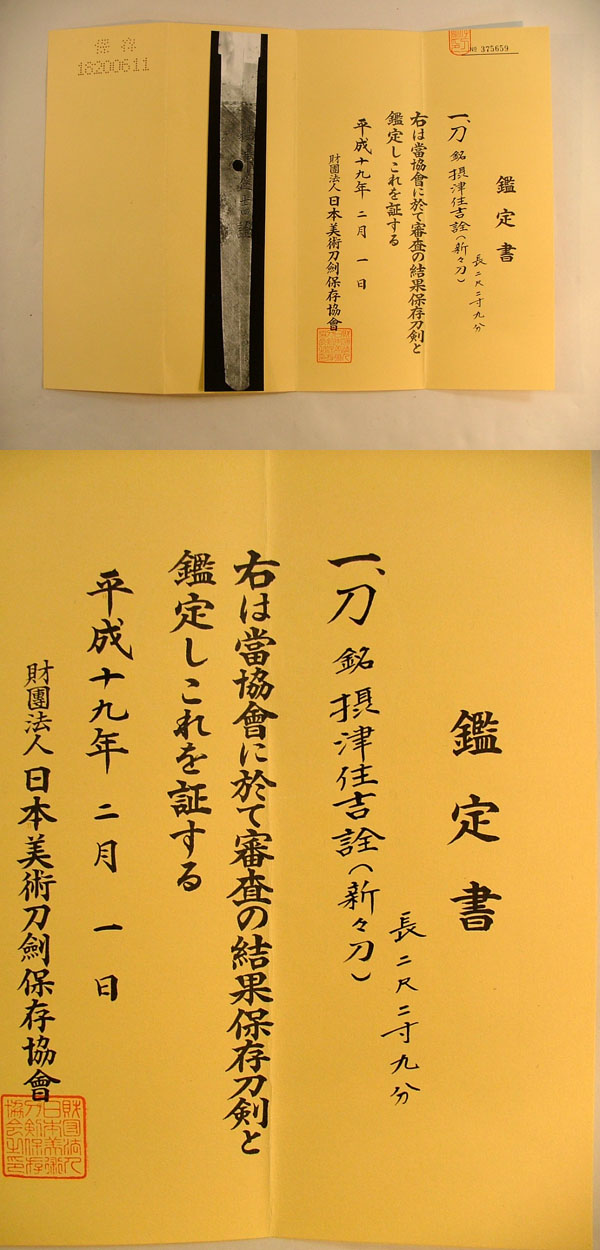 保存
18200611
№ 375659
鑑定書
一、刀 銘 摂津住吉詮(新々刀)
長二尺二寸九分
右は當協會に於て審査の結果保存刀剣と
鑑定しこれを証する
平成十九年 二月 一日
財團法人 日本美術刀劍保存協會
鑑定書
一、刀 銘 摂津住吉詮(新々刀)
長二尺二寸九分
右は當協會に於て審査の結果保存刀剣と
鑑定しこれを証する
平成十九年 二月 一日
財團法人 日本美術刀劍保存協會
財団法人
日本美術
刀剣保存
協会之印